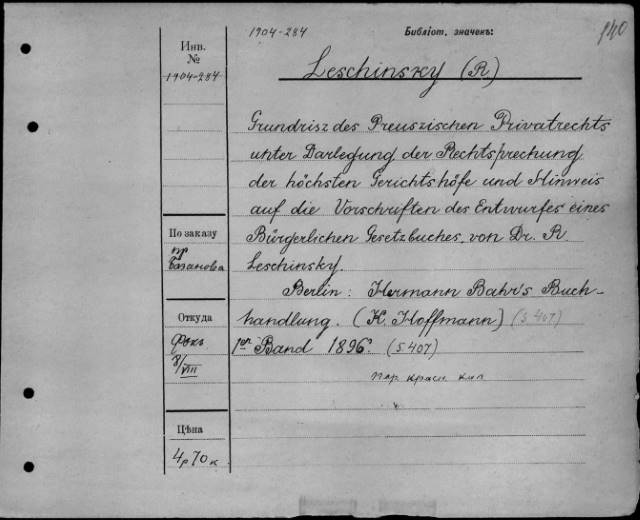 1904-284
Библіот. значекъ:
140
Инв.
№
1904-284
Leschinsky (R)
Grundrisz des Preuszischen Privatrechts
unter Darlegung der Rechtsprechung
der höchsten Gerichtshöfe und Hinweis
auf die Vorschriften des Entwurfes eines
Bürgerlichen Gesetzbuches, von Dr. R.
Leschinsky.
Berlin: Hermann Bahr's Buch-
handlung. (K. Hoffmann) (S 407)
1er Band 1896. (S 407)
По заказу
пр
Базанова
Откуда
Фокъ
8/VIII
Цѣна
4р 70к